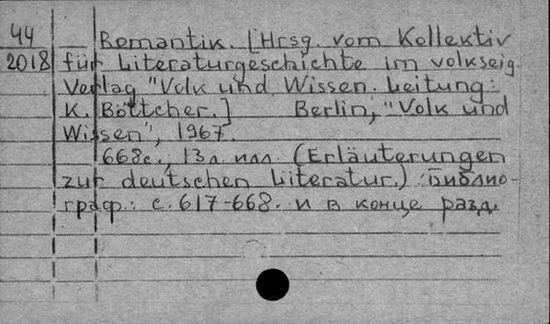 44 Romantik. [Hrsg. vom Kollektiv
2018 für Literaturgeschichte im volkseig.
Verlag "Volk und Wissen. Leitung:
K. Böttcher.] Berlin, "Volk und
Wissen", 1967.
668с., 13л. илл. (Erläuterungen
zur deutschen Literatur.) Библио-
граф.: с. 617-668. и в конце разд.